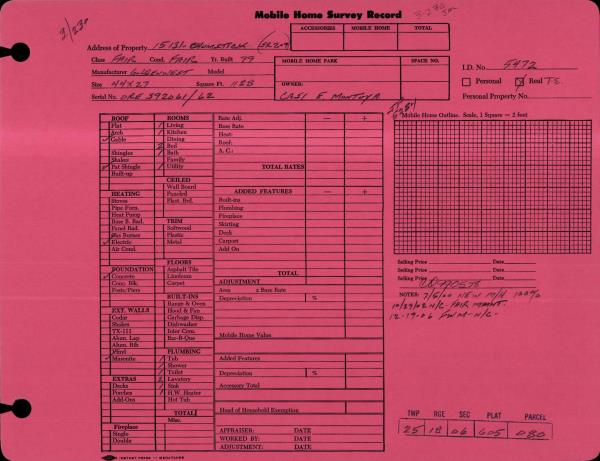 Mobile Home Survey Record
ACCESSORIES MOBILE HOME TOTAL
Address of Property 15131
Class FAIR Cond. FAIR Yr. Built 99
MOBILE HOME PARK SPACE NO.
I.D. No. 5972
Manufacturer Model
Personal Real
Size 44x27 Square Ft. 1188
OWNER:
Personal Property No.
Serial No. ORE 392061/62
CASI E. MONTOYA
Mobile Home Outline. Scale, 1 Square — 2 feet
ROOF
Flat
Arch
Gable
Shingles
Shakes
Pat Shingle
Built-up
HEATING
Stoves
Pipe Forn.
Heat Pump
Base B. Rad.
Panel Rad.
Gas Burner
Electric
Air Cond.
FOUNDATION
Concrete
Conc. Blk.
Posts/Piers
EXT. WALLS
Cedar
Shakes
TX-111
Alum. Lap
Alum. Rib
Vinyl
Masonite
EXTRAS
Decks
Porches
Add-Ons
Fireplace
Single
Double
ROOMS
Living
Kitchen
Dining
2 Bed
Bath
Family
Utility
CEILED
Wall Board
Paneled
Plast. Brd.
TRIM
Softwood
Plastic
Metal
FLOORS
Asphalt Tile
Linoleum
Carpet
BUILT-INS
Range & Oven
Hood & Fan
Garbage Disp.
Dishwasher
Inter Com.
Bar-B-Que
PLUMBING
Tub
Shower
Toilet
2 Lavatory
Sink
H.W. Heater
Hot Tub
TOTAL
Misc.
Rate Adj. — +
Base Rate
Heat:
Roof:
A. C.:
TOTAL RATES
ADDED FEATURES — +
Built-ins
Plumbing
Fireplace
Skirting
Deck
Carport
Add On
TOTAL
ADJUSTMENT
Area x Base Rate
Depreciation %
Mobile Home Value
Added Features
Depreciation %
Accessory Total
Head of Household Exemption
APPRAISER: DATE
WORKED BY: DATE
ADJUSTMENT: DATE
Selling Price Date
Selling Price Date
Selling Price Date
NOTES: 7/6/00 NEW M/H 100%
10/29/02 N/C - FAIR
12-19-06 N/C
TWP RGE SEC PLAT PARCEL
25 18 06 605 080